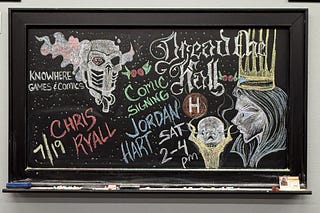 Dread the
Hall
KNOWHERE
GAMES & COMICS
COMIC
SIGNING
H
CHRIS
RYALL
7/19
JORDAN
HART
SAT
2-4
PM